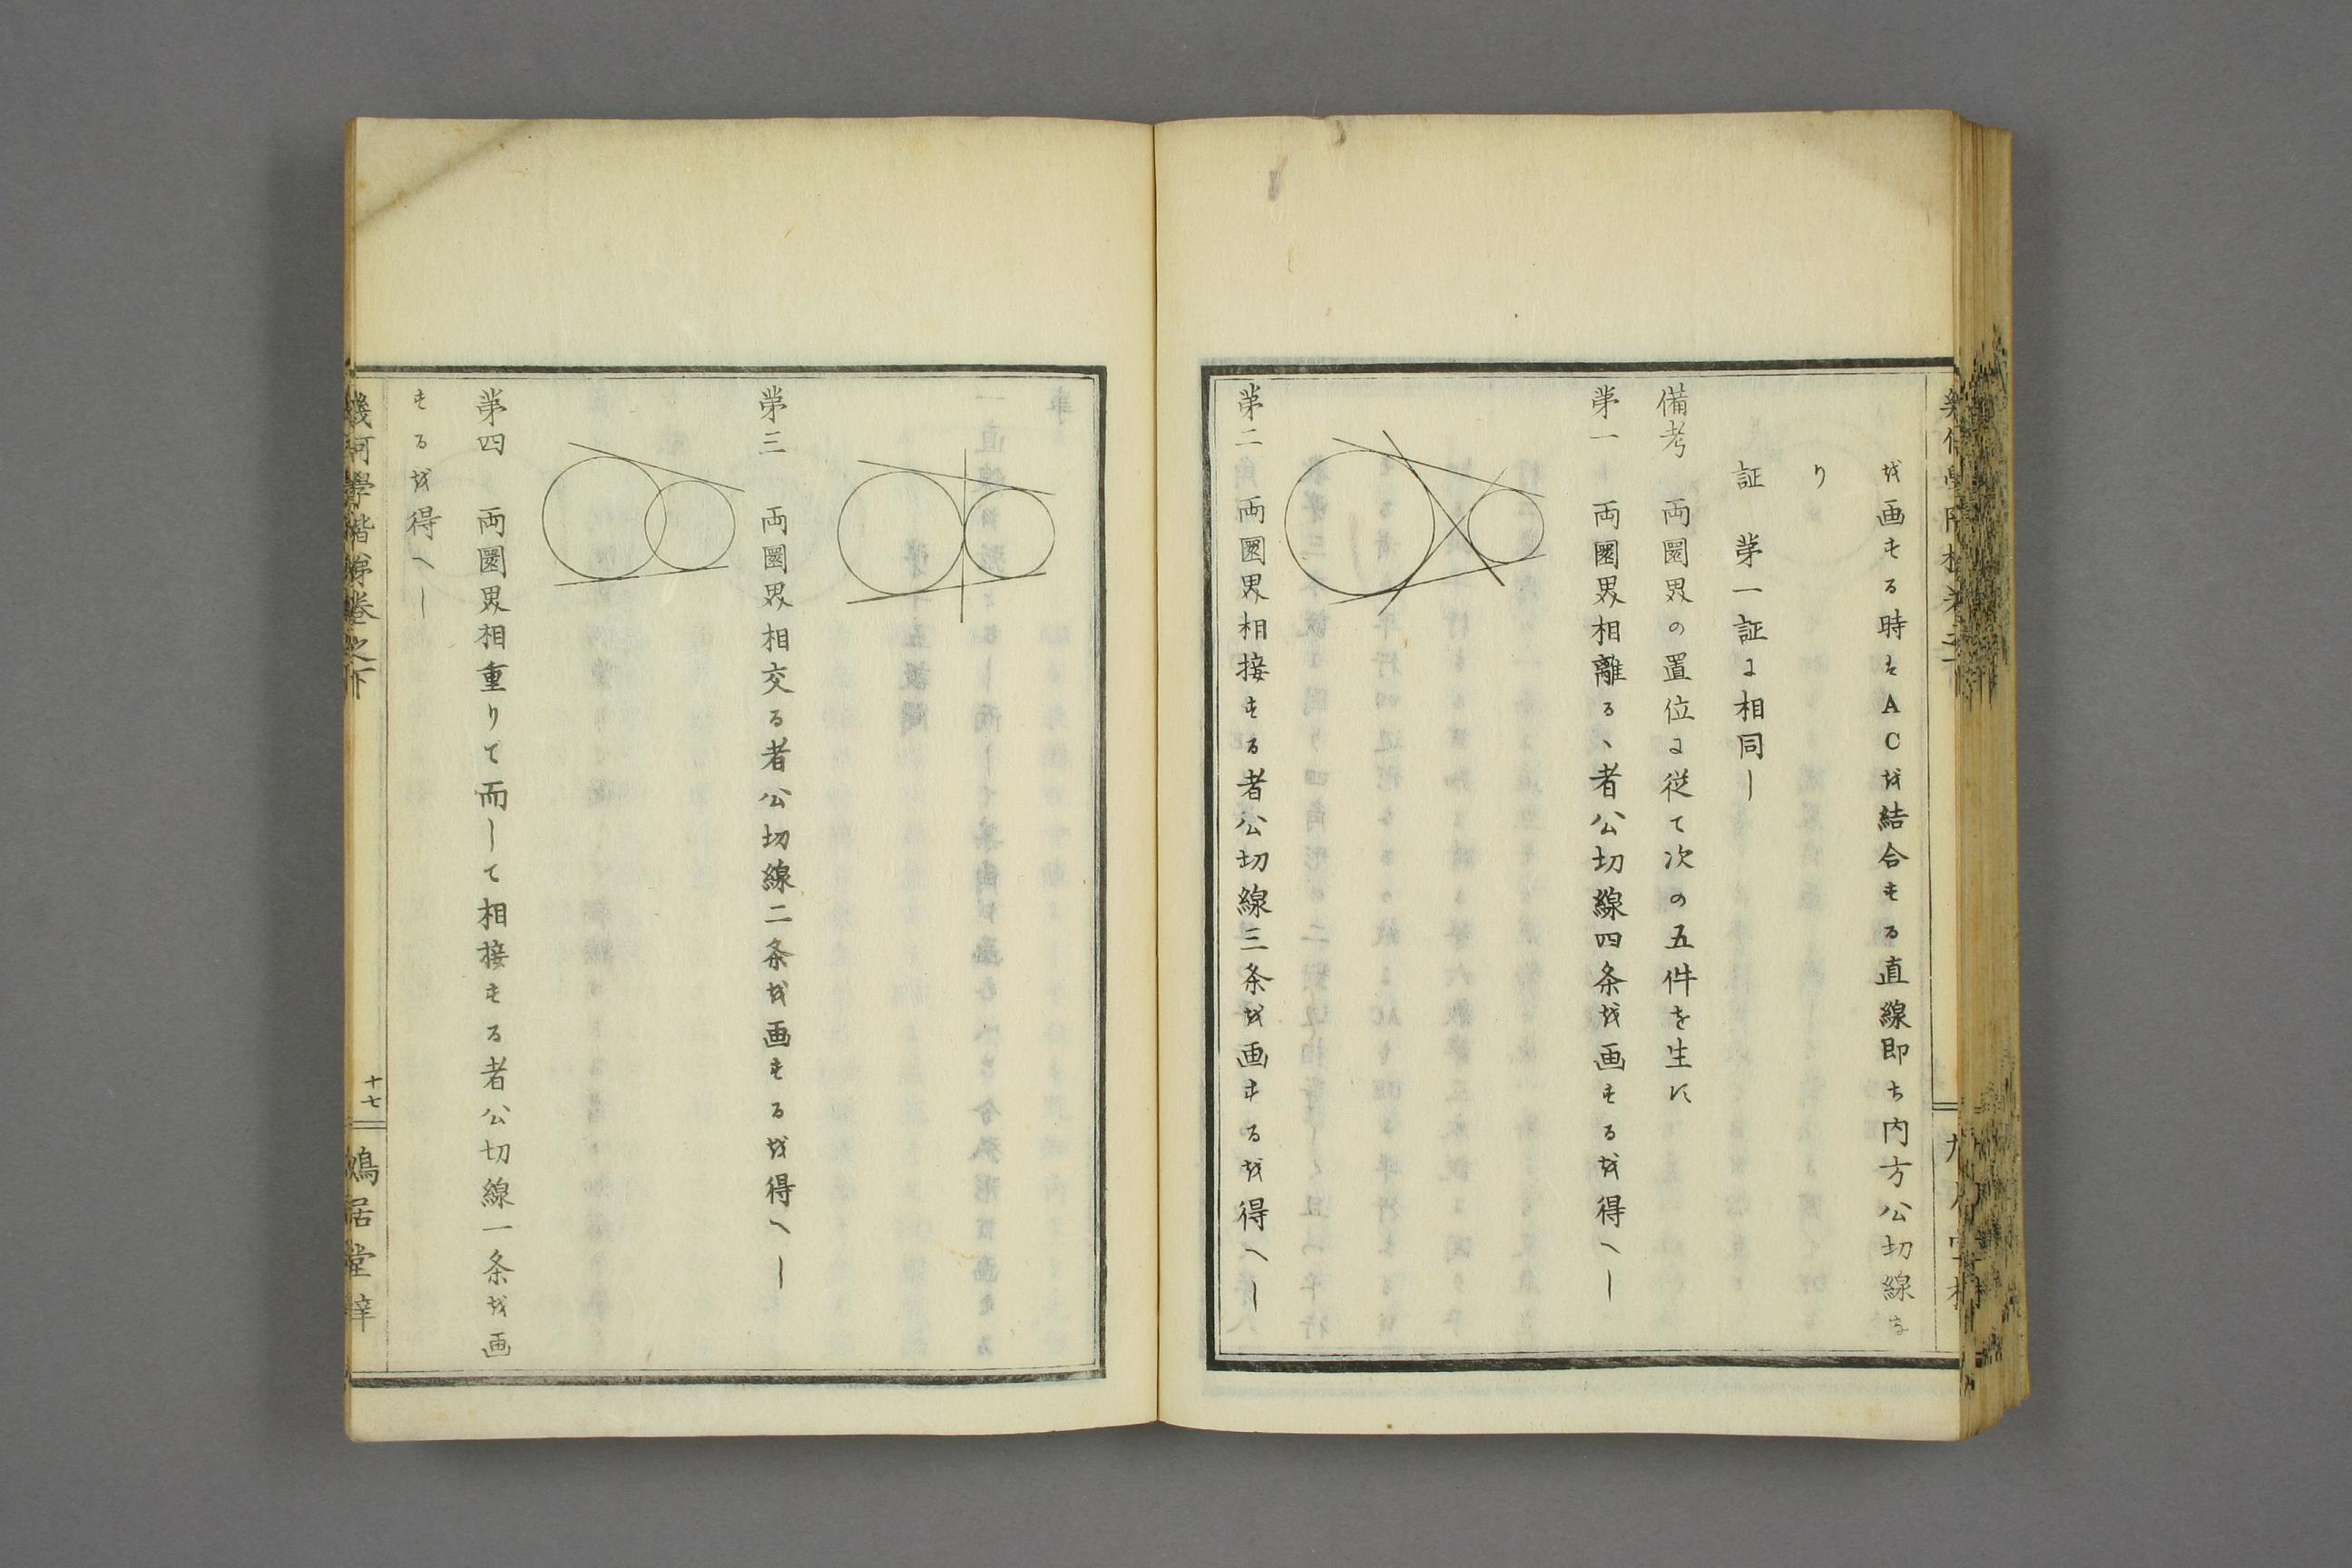 を画する時はACを結合する直線即ち内方公切線な
り
証　第一証に相同し
備考　両圏界の置位に従て次の五件を生ず
第一　両圏界相離るゝ者公切線四条を画するを得へし
第二　両圏界相接する者公切線三条を画するを得へし
第三　両圏界相交る者公切線二条を画するを得へし
第四　両圏界相重りて而して相接する者公切線一条を画
するを得へし
幾何學階梯巻之下
十七
鳩居堂梓